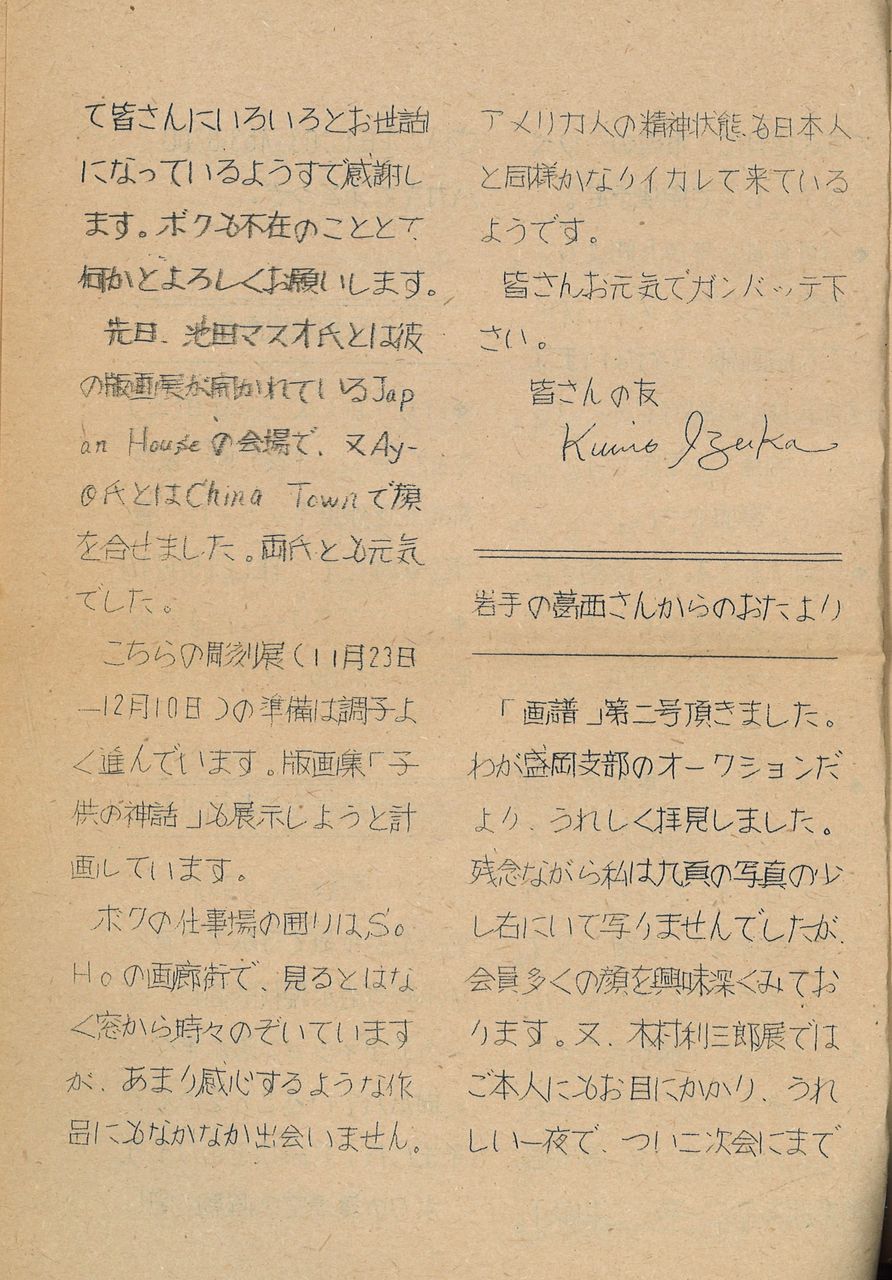 て皆さんにいろいろとお世話
になっているようすで感謝し
ます。ボクも不在のこととて
何かとよろしくお願いします。
先日、池田マスオ氏とは彼
の版画展が開かれているJap
an Houseの会場で、又Ay-
O氏とはChina Townで顔
を合せました。両氏とも元気
でした。
こちらの彫刻展(11月23日
—12月10日)の準備は調子よ
く進んでいます。版画集「子
供の神話」も展示しようと計
画しています。
ボクの仕事場の囲りは、So
Hoの画廊街で、見るとはな
く窓から時々のぞいています
が、あまり感心するような作
品にもなかなか出会いません。
アメリカ人の精神状態も日本人
と同様かなりイカレて来ている
ようです。
皆さんお元気でガンバッテ下
さい。
皆さんの友
Kunio Izuka
岩手の葛西さんからのおたより
「画譜」第二号頂きました。
わが盛岡支部のオークションだ
より、うれしく拝見しました。
残念ながら私は九頁の写真の少
し右にいて写りませんでしたが、
会員多くの顔を興味深くみてお
ります。又、木村利三郎展では
ご本人にもお目にかかり、うれ
しい一夜で、つい二次会にまで